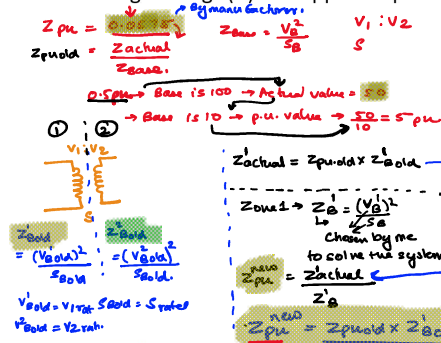 By manufacturer.
Zpu = 0.05
Zpuold = Zactual / Zbase.
Zbase = V_B² / S_B
V₁ : V₂
S
0.5pu → Base is 100 → Actual value = 50
→ Base is 10 → p.u. value → 50/10 = 5 pu
① ②
V₁ V₂
S
Z¹Bold = (V¹Bold)² / SBold
Z²Bold = (V²Bold)² / SBold.
V¹Bold = V₁rat. SBold = Srated
V²Bold = V₂rat.
Z¹actual = Zpuold x Z¹Bold
Zone 1 → Z¹B = (V¹B)² / S_B
Chosen by me
to solve the system
Z¹pu new = Z¹actual / Z¹B
Zpu new = Zpuold x Z¹Bo